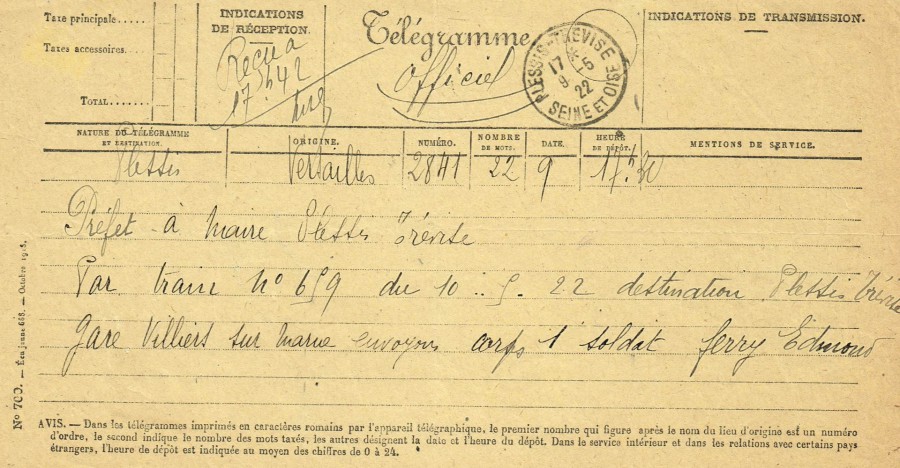 Taxe principale
Taxes accessoires
TOTAL
INDICATIONS
DE RÉCEPTION.
Reçu à
17h42
Télégramme
Officiel
PLESSIS-TRÉVISE
17 *
9 -5
22
SEINE ET OISE
INDICATIONS DE TRANSMISSION.
NATURE DU TÉLÉGRAMME
ET DESTINATION.
ORIGINE.
NUMÉRO.
NOMBRE
DE MOTS.
DATE.
HEURE
DE DÉPÔT.
MENTIONS DE SERVICE.
Plessis Versailles 2841 22 9 17h30
Préfet à Maire Plessis Trévise
Par train N° 659 du 10 . 5 . 22 destination Plessis Trévise
gare Villiers sur Marne envoyons corps 1 soldat ferry Edmond
N° 700. — Octobre 1918.
AVIS. — Dans les télégrammes imprimés en caractères romains par l'appareil télégraphique, le premier nombre qui figure après le nom du lieu d'origine est un numéro
d'ordre, le second indique le nombre des mots taxés, les autres désignent la date et l'heure du dépôt. Dans le service intérieur et dans les relations avec certains pays
étrangers, l'heure de dépôt est indiquée au moyen des chiffres de 0 à 24.